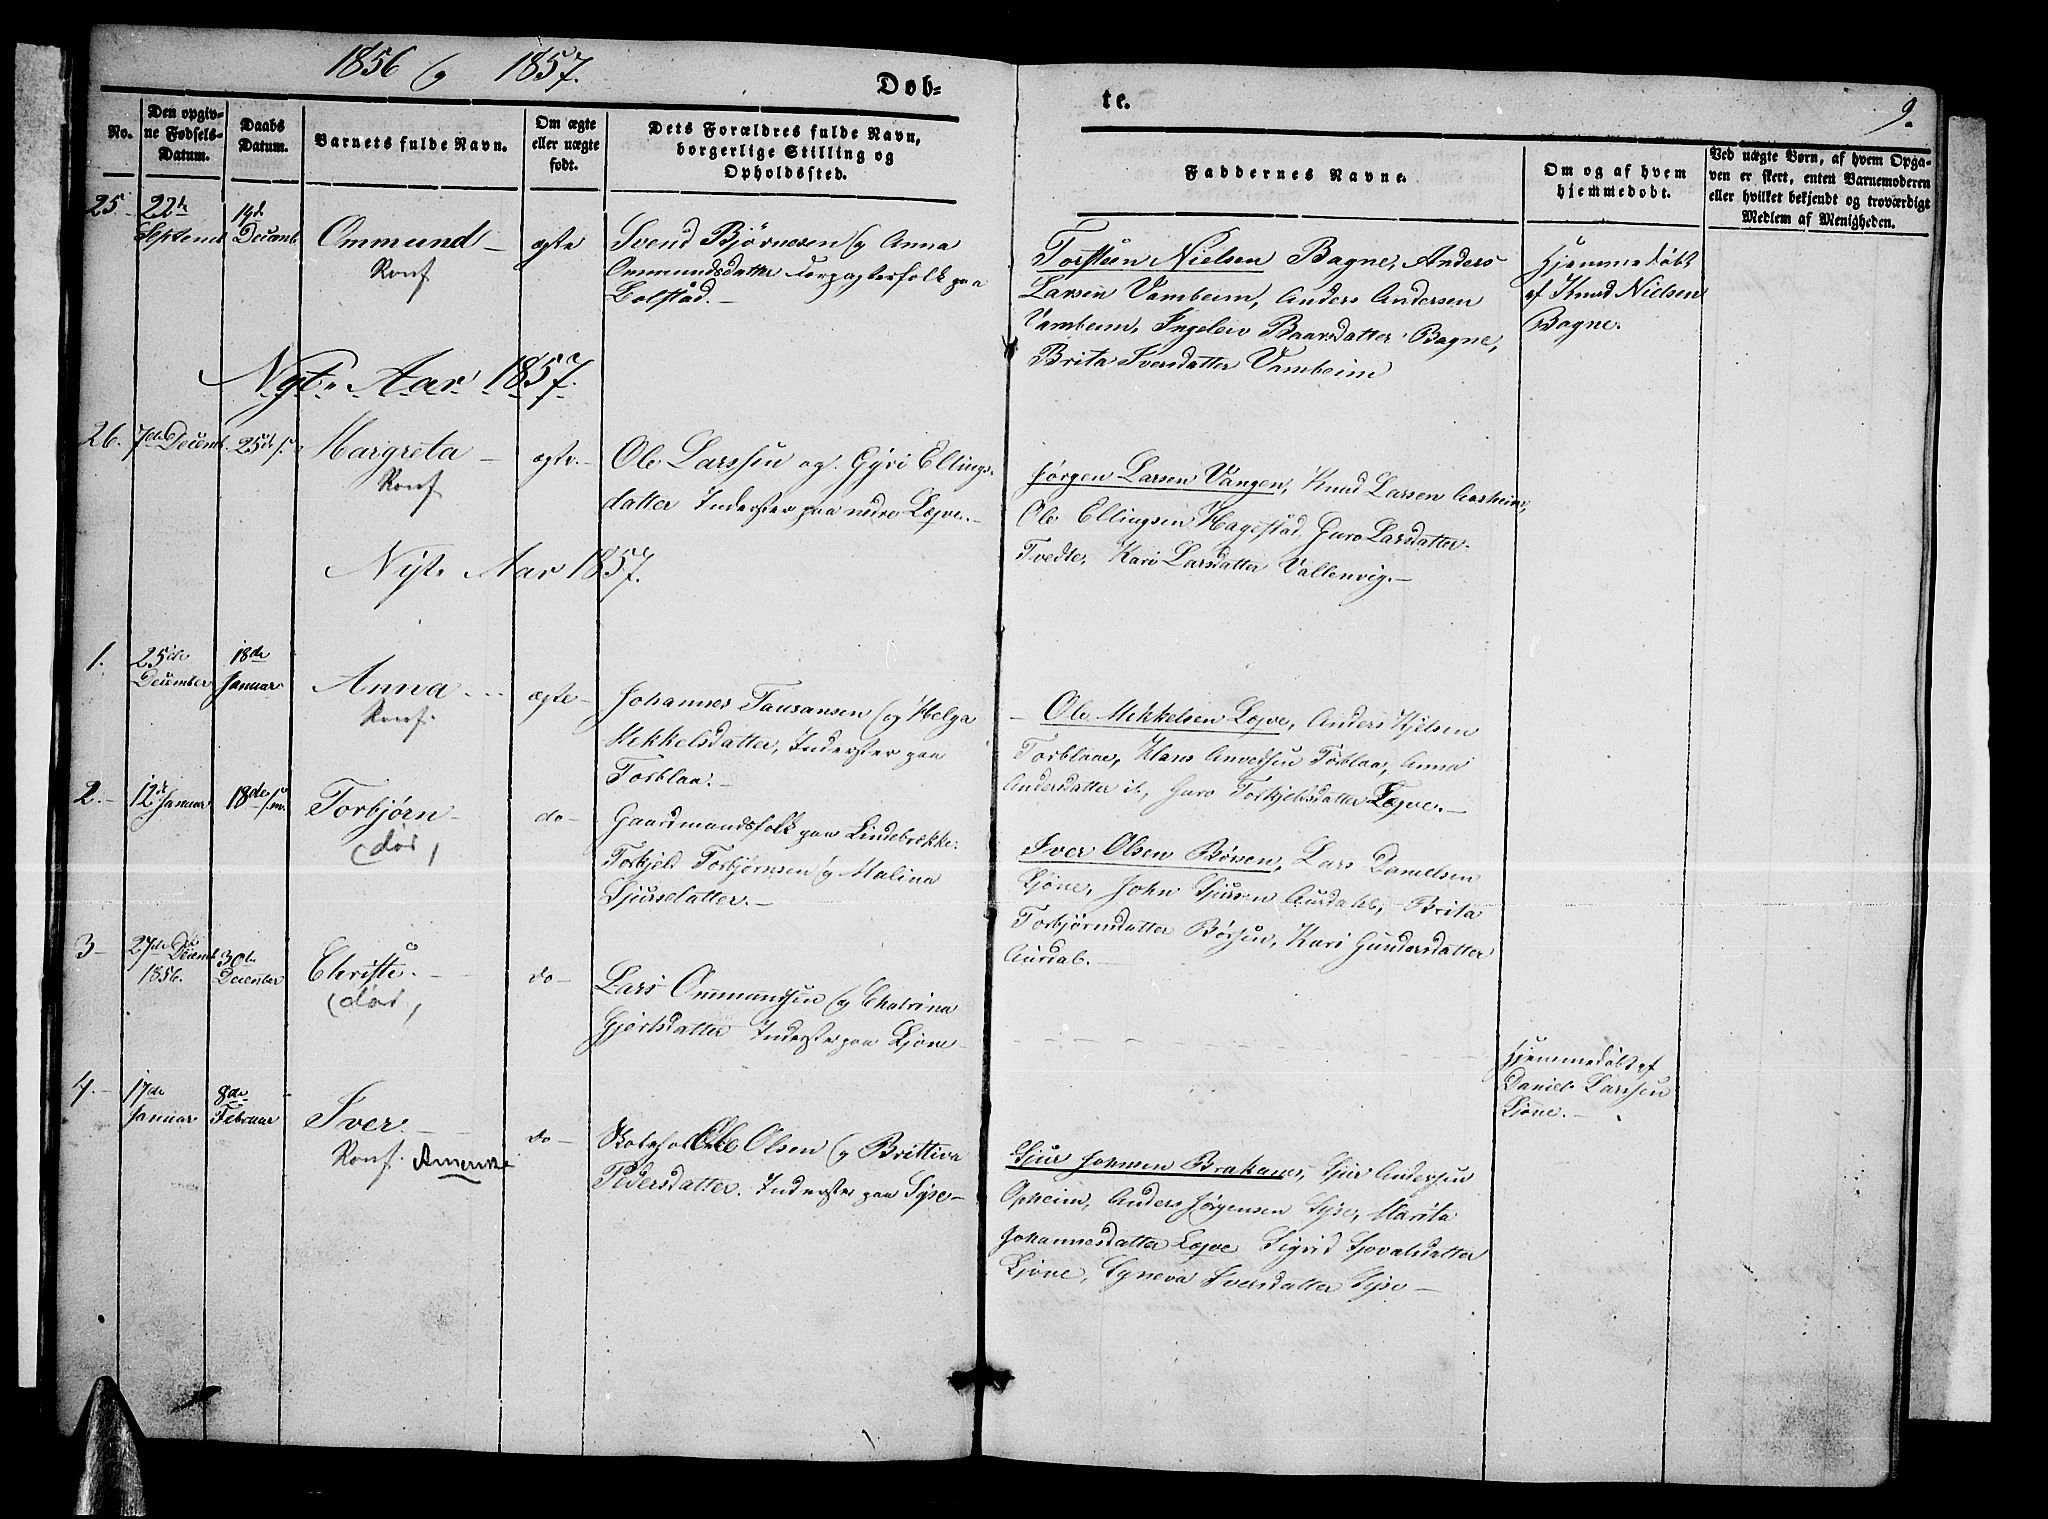 1856 og 1857.
Døb-
te.
9.
No.
Den opgiv-
ne Fødsels-
Datum.
Daabs
Datum.
Barnets fulde Navn.
Om ægte
eller uægte
født.
Dets Forældres fulde Navn,
borgerlige Stilling og
Opholdssted.
Faddernes Navne.
Om og af hvem
hjemmedøbt.
Ved uægte Børn, af hvem Opga-
ven er skeet, enten Barnemoderen
eller hvilket bekjendt og troværdigt
Medlem af Menigheden.
25
22de
Septemb
19de
Decemb
Ommund
Konf
ægte
Svend Bjørnesen og Anna
Ommundsdatter Forpagterfolk paa
Lolstad.
Torstein Nielsen Bagne, Anders
Larsen Vambeim, Anders Andersen
Vambeim, Ingelev Baarsdatter Bagne,
Brita Iversdatter Vambeim
Hjemmedøbt
af Knud Nielsen
Bagne.
Nyt Aar 1857.
26.
7de Decemb.
25de
Margreta
Konf
ægte
Ole Larssen og Gyri Ellings-
datter Inderster paa nedre Løjve.
Jørgen Larsen Vangen, Knud Larsen Aasheim,
Ole Ellingsen Hagestad, Guro Larsdatter
Tvedte, Kari Larsdatter Vallenvig.
Nyt Aar 1857.
1.
25de
December
18de
Januar
Anna
Konf.
ægte
Johannes Tausansen og Helga
Mekkelsdatter, Inderster paa
Torblaa.
Ole Mekkelsen Lojve, Anders Kjelsen
Torblaae, Hans Torblaa, Anna
Andersdatter ib, Guro Torkjelsdatter Lojve.
2.
12te Januar
18de s.m.
Torbjørn
(død)
do
Gaardmandsfolk paa Lindebrække
Torkjels Torbjørnsen og Malina
Sjursdatter.
Iver Olsen Bønen, Lars Danielsen
Ljone, John Sjursen Aurdahl, Brita
Torbjørnsdatter Børsen, Kari Gundersdatter
Aurdal.
3
27de Decemb
1856.
30te
December
Christi.
(død)
do
Lars Ommundsen og Chatrina
Gjertsdatter Inderster paa Ljone
Hjemmedøbt af
Daniel Larssen
Ljone.
4.
17de
Januar
8de
Februar
Iver.
Konf. Amerika
do
Ole Olsen og Brittiva
Pedersdatter. Inderster paa Syse
Sjur Johnsen Brakanes, Sjur Andersen
Opheim, Anders Jørgensen Syse, Marita
Johannesdatter Lojve Sigrid Sjovalsdatter
Ljone, Syneva Iversdatter Syse